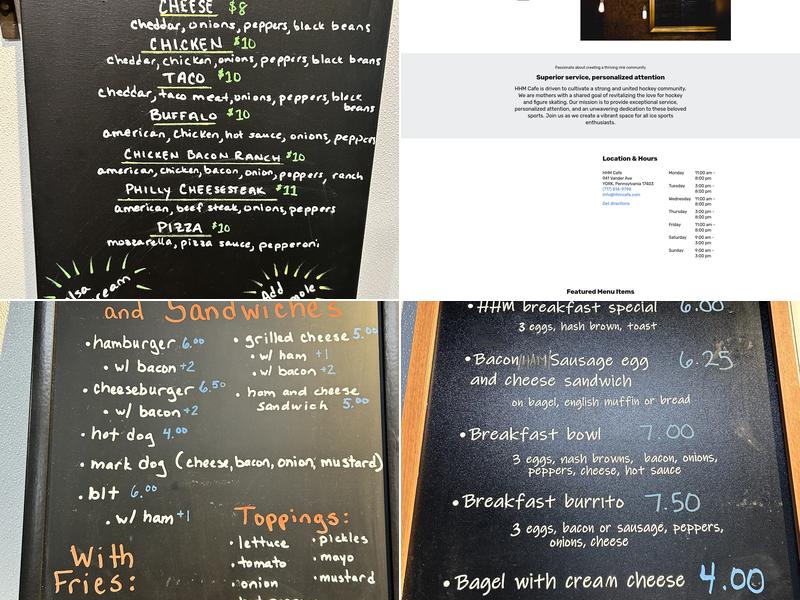 CHEESE $8
cheddar, onions, peppers, black beans
CHICKEN $10
cheddar, chicken, onions, peppers, black beans
TACO $10
cheddar, taco meat, onions, peppers, black
beans
BUFFALO $10
american, chicken, hot sauce, onions, peppers
CHICKEN BACON RANCH $10
american, chicken, bacon, onion, peppers, ranch
PHILLY CHEESESTEAK $11
american, beef steak, onions, peppers
PIZZA $10
mozzarella, pizza sauce, pepperoni
Add
Passionate about creating a thriving rink community
Superior service, personalized attention
HHM Cafe is driven to cultivate a strong and united hockey community.
We are mothers with a shared goal of revitalizing the love for hockey
and figure skating. Our mission is to provide exceptional service,
personalized attention, and an unwavering dedication to these beloved
sports. Join us as we create a vibrant space for all ice sports
enthusiasts.
Location & Hours
HHM Cafe
941 Vander Ave
YORK, Pennsylvania 17403
(717) 916-9798
info@hhmcafe.com
Get directions
Monday 11:00 am -
8:00 pm
Tuesday 3:00 pm -
8:00 pm
Wednesday 11:00 am -
8:00 pm
Thursday 3:00 pm -
8:00 pm
Friday 11:00 am -
8:00 pm
Saturday 9:00 am -
3:00 pm
Sunday 9:00 am -
3:00 pm
Featured Menu Items
and Sandwiches
• hamburger 6.00
• w/ bacon +2
• cheeseburger 6.50
• w/ bacon +2
• hot dog 4.00
• mark dog (cheese, bacon, onion, mustard)
• blt 6.00
• w/ ham +1
• grilled cheese 5.00
• w/ ham +1
• w/ bacon +2
• ham and cheese
sandwich 5.00
With
Fries:
Toppings:
• lettuce
• tomato
• onion
• pickles
• mayo
• mustard
• HHM breakfast special 6.00
3 eggs, hash brown, toast
• Bacon/HAM/Sausage egg 6.25
and cheese sandwich
on bagel, english muffin or bread
• Breakfast bowl 7.00
3 eggs, hash browns, bacon, onions,
peppers, cheese, hot sauce
• Breakfast burrito 7.50
3 eggs, bacon or sausage, peppers,
onions, cheese
• Bagel with cream cheese 4.00